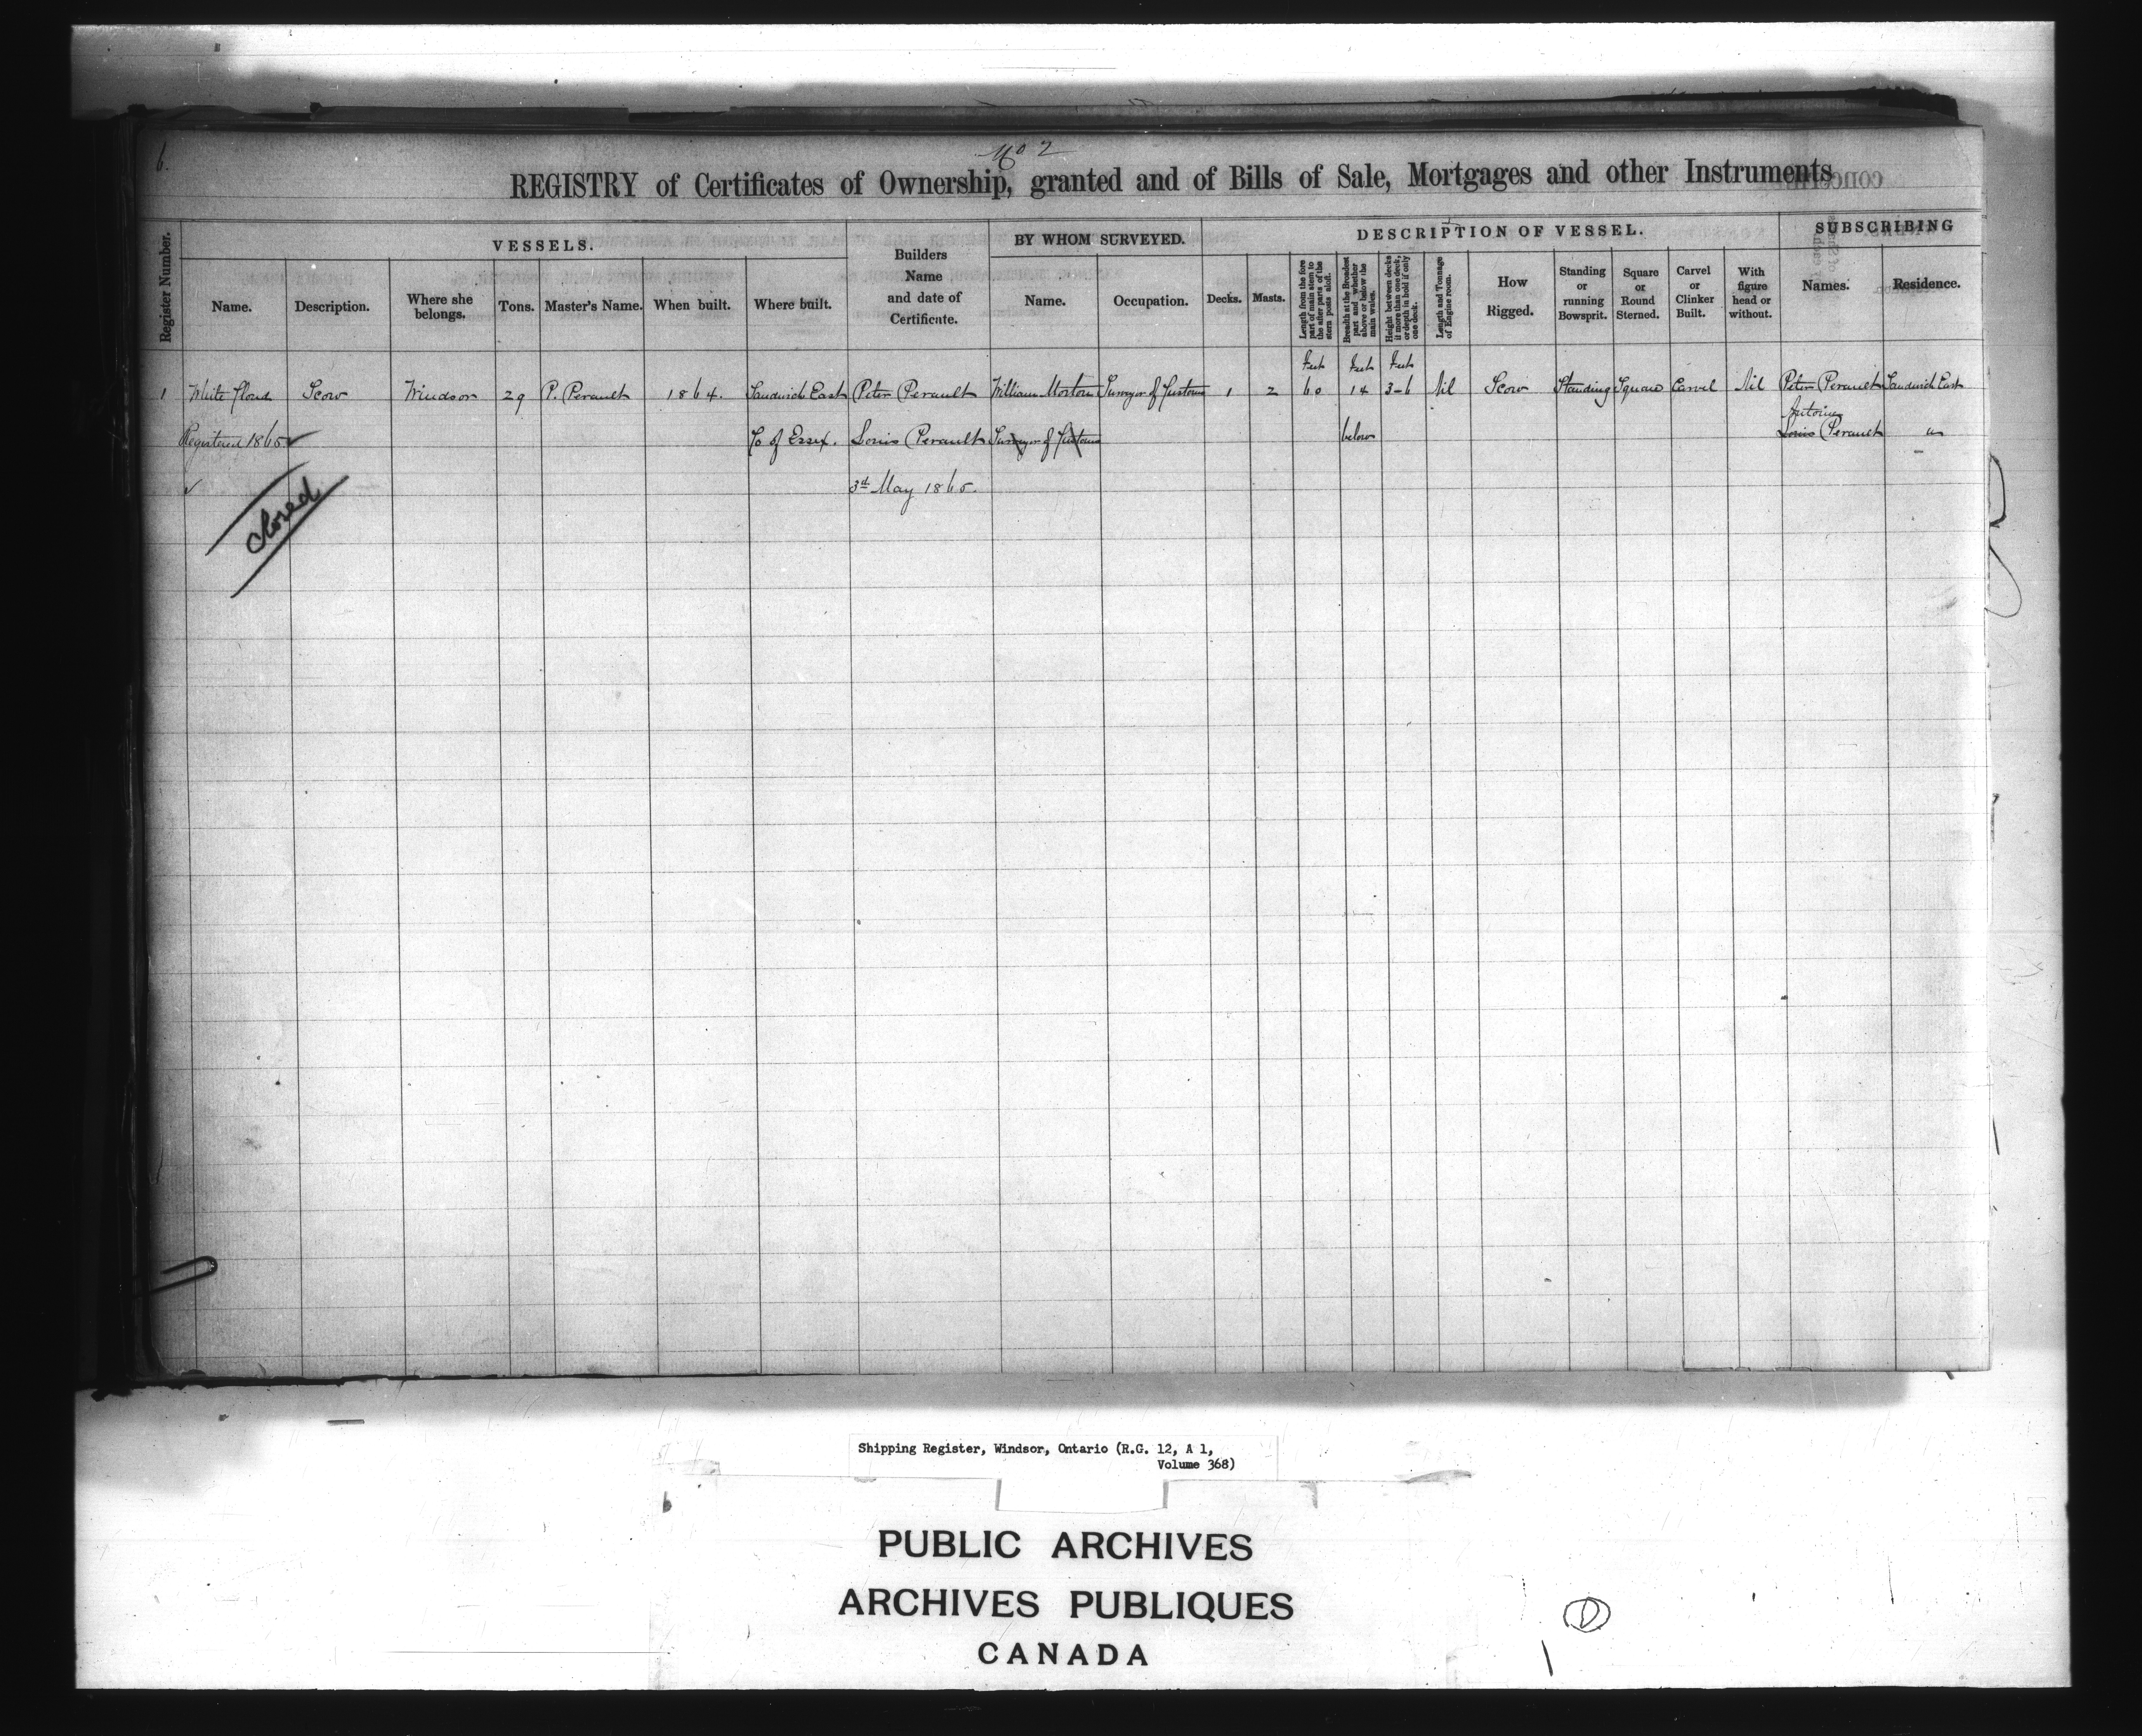 6.
No 2
REGISTRY of Certificates of Ownership, granted and of Bills of Sale, Mortgages and other Instruments
Register Number.
VESSELS.
Name.
Description.
Where she belongs.
Tons.
Master's Name.
When built.
Where built.
Builders
Name
and date of
Certificate.
BY WHOM SURVEYED.
Name.
Occupation.
DESCRIPTION OF VESSEL.
Decks.
Masts.
Length from the fore part of main stem to the after parts of the stern posts aloft.
Breadth at the Broadest part and whether above or below the main wales.
Height between decks if more than one deck, or depth in hold if only one deck.
Length and Tonnage of Engine room.
How Rigged.
Standing or running Bowsprit.
Square or Round Sterned.
Carvel or Clinker Built.
With figure head or without.
SUBSCRIBING
Names.
Residence.
Feet Feet Feet
1 White Cloud Scow Windsor 29 P. Perault 1864. Sandwich East Peter Perault William Morton Surveyor of Customs 1 2 60 14 3-6 Nil Scow Standing Square Carvel Nil Peter Perault Sandwich East
Antoine
Registered 1865 ✓ Co of Essex. Louis Perault Surveyor of Customs below Louis Perault "
✓ 3rd May 1865.
closed
Shipping Register, Windsor, Ontario (R.G. 12, A 1,
Volume 368)
PUBLIC ARCHIVES
ARCHIVES PUBLIQUES
CANADA